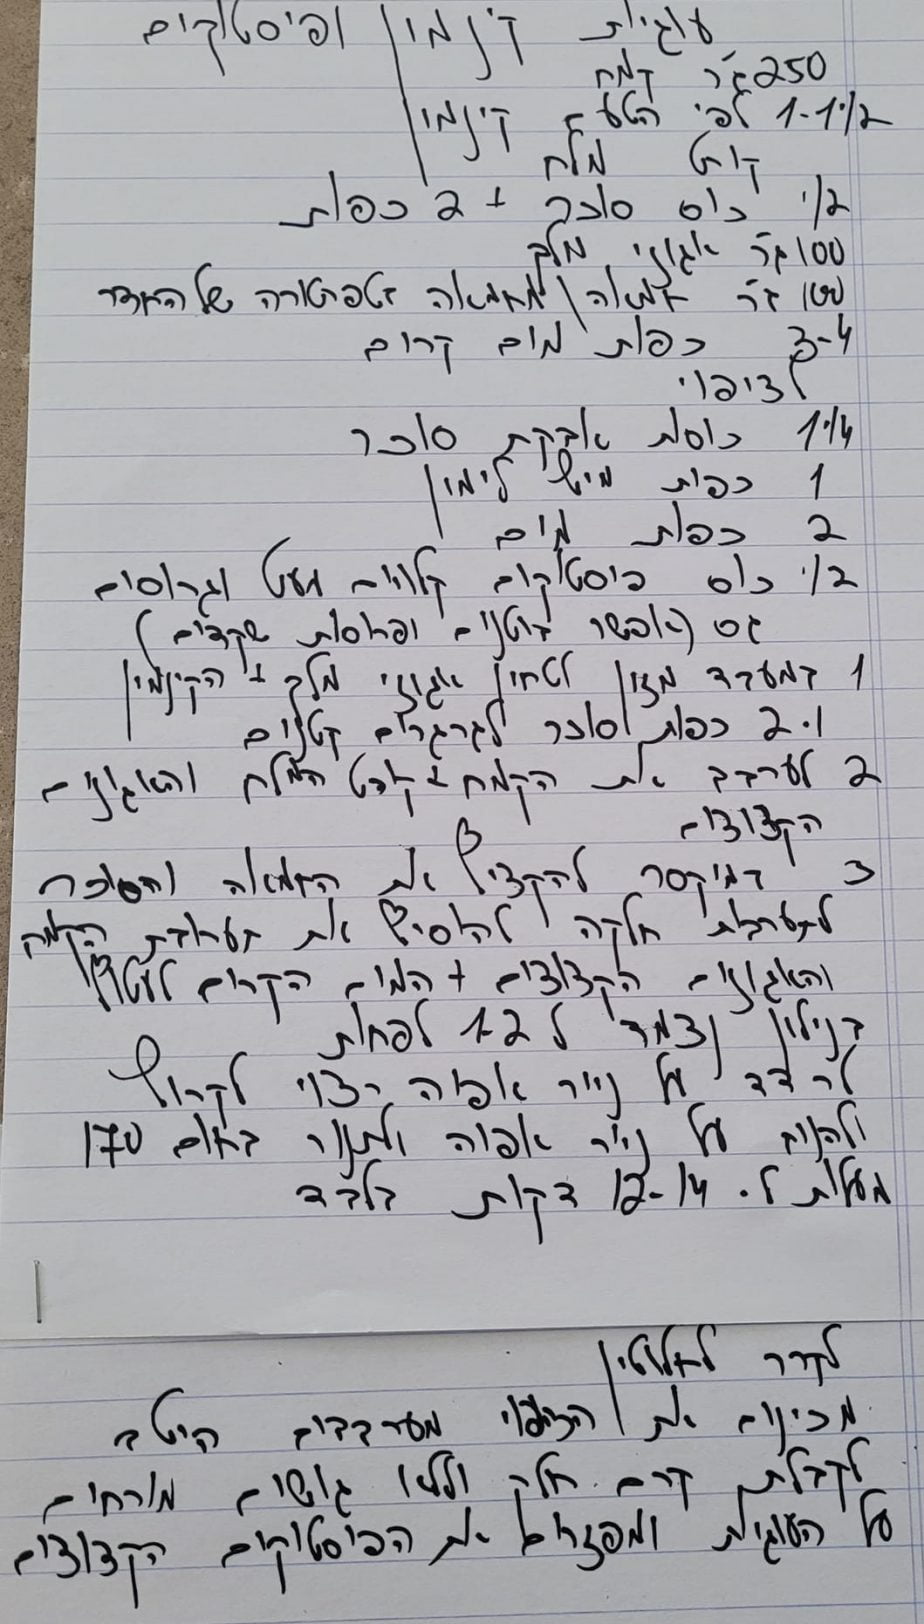 עוגיות קינמון ופיסטוקים
250 גר' קמח
1-1 1/2 לפי הטעם קינמון
קורט מלח
1/2 כוס סוכר + 2 כפות
100 גר' אגוזי מלך
100 גר' חמאה/מחמאה בטמפרטורה של החדר
3-4 כפות מים קרים
לציפוי
1 1/4 כוסות אבקת סוכר
1 כפות מיץ לימון
2 כפות מים
1/2 כוס פיסטוקים קלויים מעט וגרוסים
גס (אפשר בוטנים ופרוסות שקדים)
1 במעבד מזון לטחון אגוזי מלך + הקינמון
2.1 כפות סוכר לגרגרים קטנים
2 לערבב את הקמח + קורט המלח והאגוזים
הקצוצים
3 במיקסר להקציף את החמאה והסוכר
לתערובת חלקה להוסיף את תערובת הקמח
והאגוזים הקצוצים + המים הקרים לעטוף
בנילון נצמד ל 1-2 לפחות
לרדד על נייר אפיה רצוי לקרוץ
ולהניח על נייר אפיה ולתנור בחום 170
מעלות ל. 12-14 דקות בלבד
לקרר לחלוטין
מכינים את הציפוי מערבבים היטב
לקבלת קרם חלק וללא גושים מורחים
על העוגיות ומפזרים את הפיסטוקים הקצוצים